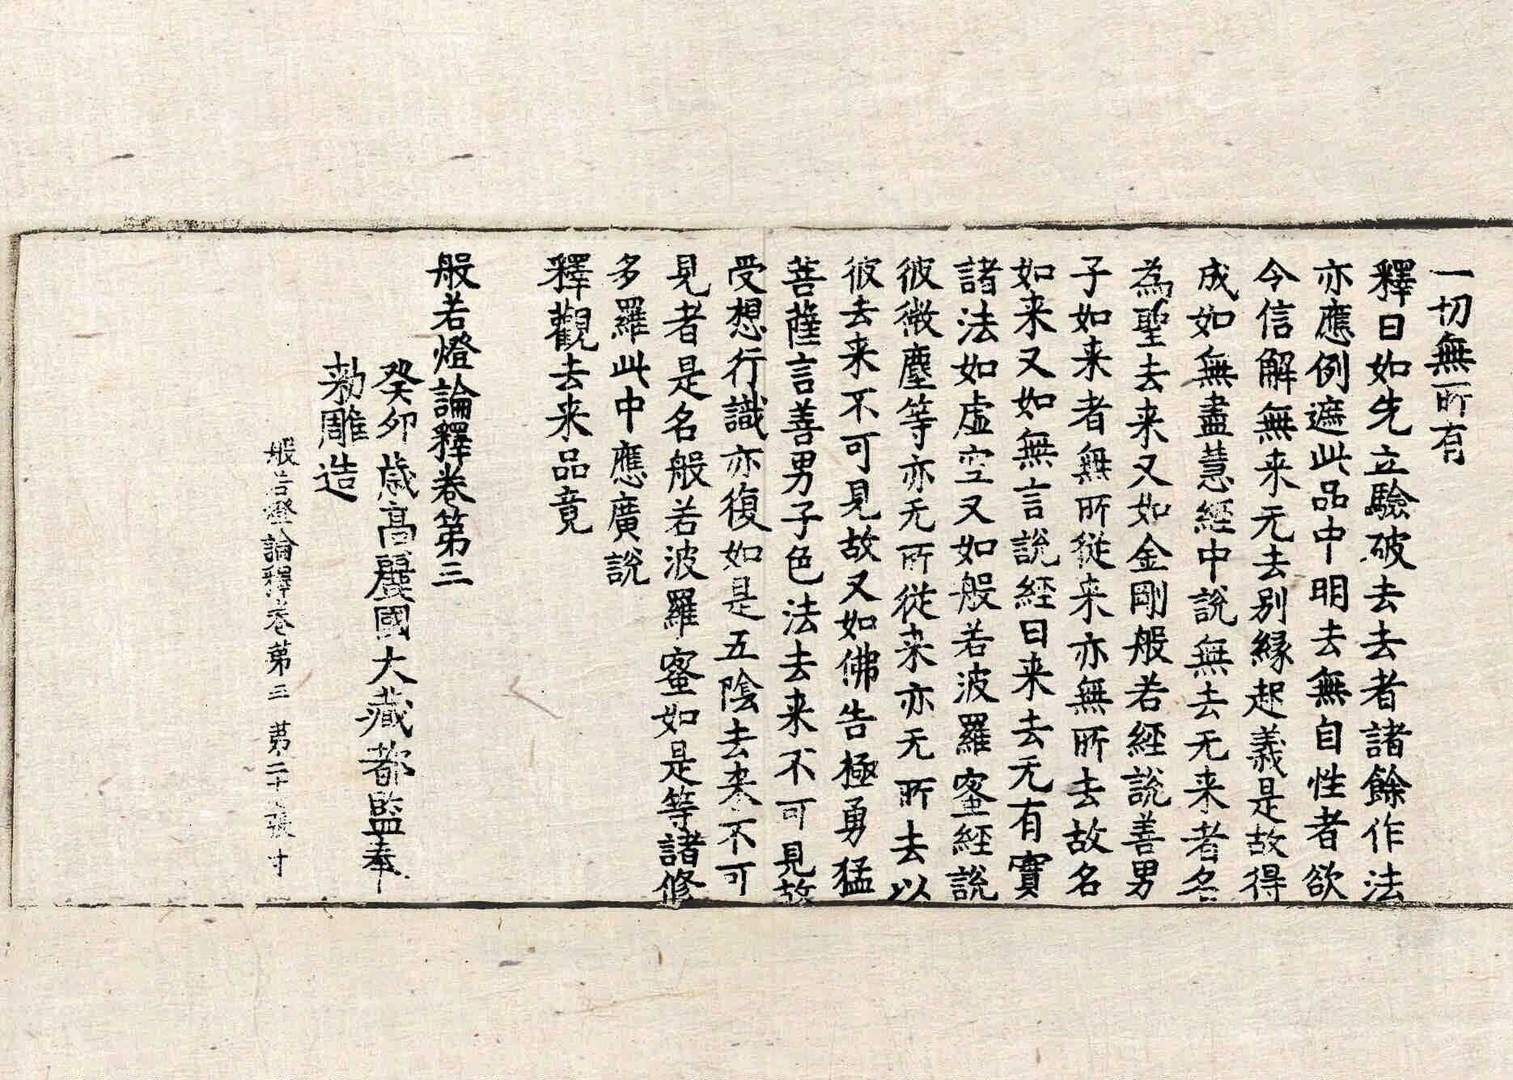 一切無所有
釋曰如先立驗破去去者諸餘作法
亦應例遮此品中明去無自性者欲
令信解無来无去別緣起義是故得
成如無盡慧經中說無去无来者名
為聖去来又如金剛般若經說善男
子如来者無所從来亦無所去故名
如来又如無言說經曰来去无有實
諸法如虛空又如般若波羅蜜經說
彼微塵等亦无所從来亦无所去以
彼去来不可見故又如佛告極勇猛
菩薩言善男子色法去来不可見故
受想行識亦復如是五陰去来不可
見者是名般若波羅蜜如是等諸修
多羅此中應廣說
釋觀去来品竟
般若燈論釋卷第三
癸卯歳高麗國大藏都監奉
勑雕造
般若燈論釋卷第三 苐二十張 寸